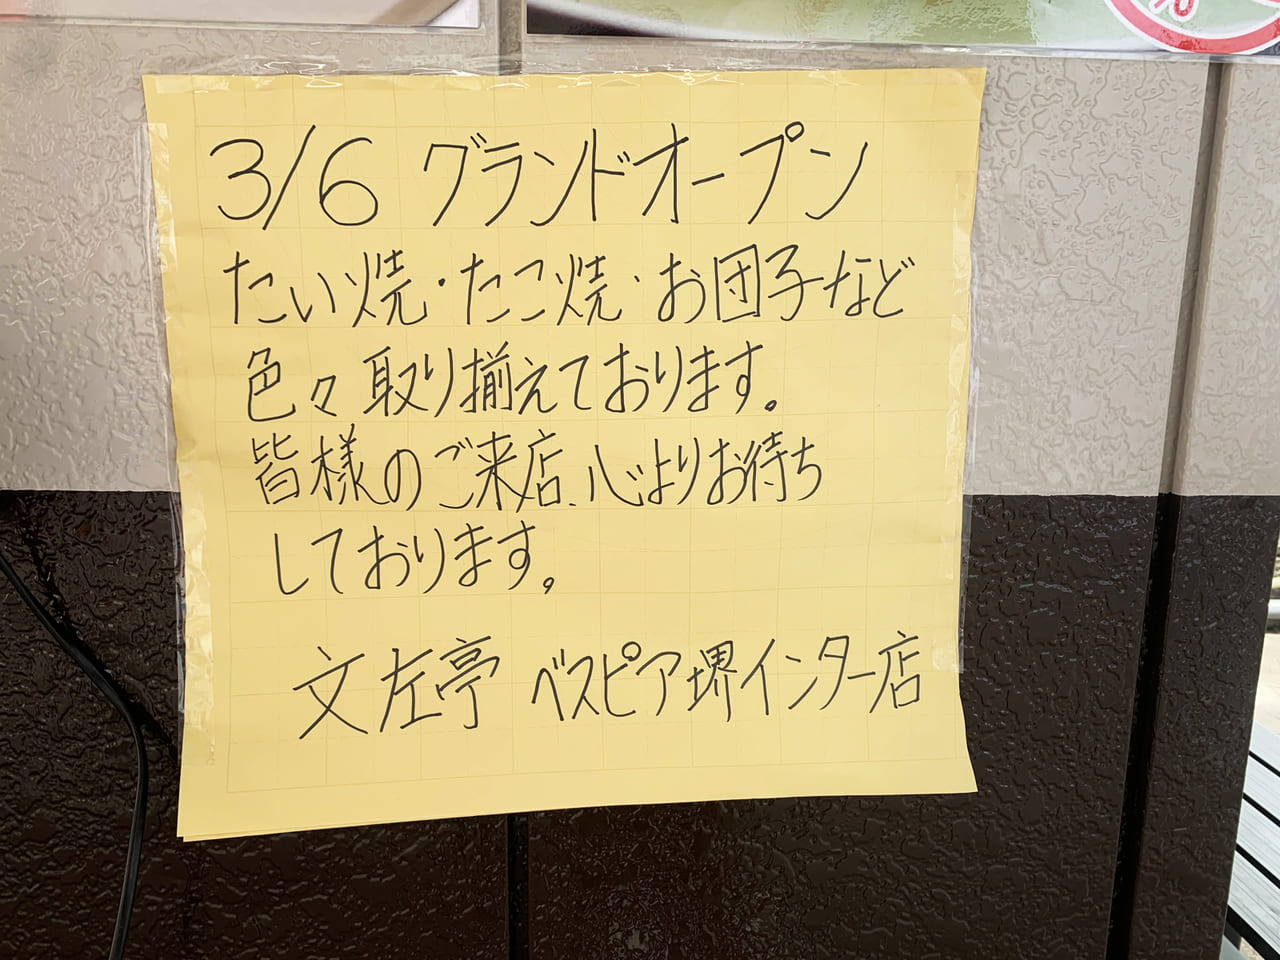 3/6 グランドオープン
たい焼・たこ焼・お団子など
色々取り揃えております。
皆様のご来店、心よりお待ち
しております。
文左亭 ベスピア堺インター店